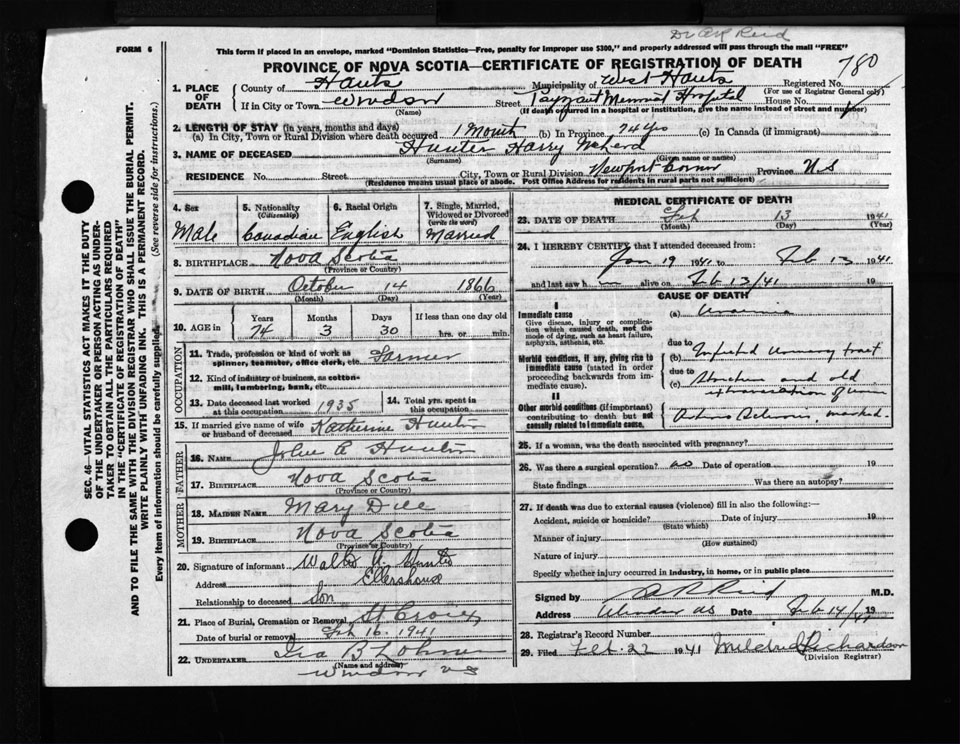 Dr A R Reid
FORM 6
This form if placed in an envelope, marked "Dominion Statistics—Free, penalty for improper use $300," and properly addressed will pass through the mail "FREE"
PROVINCE OF NOVA SCOTIA—CERTIFICATE OF REGISTRATION OF DEATH
780
1. PLACE OF DEATH
County of Hants Municipality of West Hants Registered No.
(For use of Registrar General only)
If in City or Town Windsor Street Payzant Memorial Hospital House No.
(Name) (If death occurred in a hospital or institution, give the name instead of street and number)
2. LENGTH OF STAY (in years, months and days)
(a) In City, Town or Rural Division where death occurred 1 Month (b) In Province 74 yrs (c) In Canada (if immigrant)
3. NAME OF DECEASED Hunter Harry
(Surname) (Given name or names)
RESIDENCE No. Street City, Town or Rural Division Newport Corner Province N.S
(Residence means usual place of abode. Post Office Address for residents in rural parts not sufficient)
4. Sex
Male
5. Nationality
(Citizenship)
Canadian
6. Racial Origin
English
7. Single, Married, Widowed or Divorced
(write the word)
Married
8. BIRTHPLACE Nova Scotia
(Province or Country)
9. DATE OF BIRTH October 14 1866
(Month) (Day) (Year)
10. AGE in
Years Months Days If less than one day old
74 3 30 hrs. or min.
OCCUPATION
11. Trade, profession or kind of work as spinner, teamster, office clerk, etc. Farmer
12. Kind of industry or business, as cotton-mill, lumbering, bank, etc.
13. Date deceased last worked at this occupation 1935
14. Total yrs. spent in this occupation
15. If married give name of wife or husband of deceased Katherine Hunter
FATHER
16. NAME John A Hunter
17. BIRTHPLACE Nova Scotia
(Province or Country)
MOTHER
18. MAIDEN NAME Mary Dill
19. BIRTHPLACE Nova Scotia
(Province or Country)
20. Signature of informant Walter A. Hunter
Address Ellershouse
Relationship to deceased Son
21. Place of Burial, Cremation or Removal St Croix
Date of burial or removal Feb 16, 1941
22. UNDERTAKER Ira B Lohnes
(Name and address)
Windsor NS
MEDICAL CERTIFICATE OF DEATH
23. DATE OF DEATH Feb 13 1941
(Month) (Day) (Year)
24. I HEREBY CERTIFY, that I attended deceased from:
Jan 19 1941 to Feb 13 1941
and last saw him alive on Feb 13/41 19
CAUSE OF DEATH
I
Immediate cause
Give disease, injury or complication which caused death, not the mode of dying, such as heart failure, asphyxia, asthenia, etc.
(a) Uraemia
Morbid conditions, if any, giving rise to immediate cause (stated in order proceeding backwards from immediate cause).
due to
(b) Infected Urinary tract
due to
(c) Stricture and old
extravasation of urine
II
Other morbid conditions (if important) contributing to death but not causally related to immediate cause.
Arterio Sclerosis marked.
25. If a woman, was the death associated with pregnancy?
26. Was there a surgical operation? no Date of operation 19
State findings Was there an autopsy?
27. If death was due to external causes (violence) fill in also the following:—
Accident, suicide or homicide? Date of injury 19
(State which)
Manner of injury
(How sustained)
Nature of injury
Specify whether injury occurred in industry, in home, or in public place
Signed by A R Reid M.D.
Address Windsor NS Date Feb 14/41 19
28. Registrar's Record Number
29. Filed Feb. 22 1941 Mildred Richardson
(Division Registrar)
SEC. 46—VITAL STATISTICS ACT MAKES IT THE DUTY
OF THE UNDERTAKER OR PERSON ACTING AS UNDERTAKER TO OBTAIN ALL THE PARTICULARS REQUIRED
IN THE "CERTIFICATE OF REGISTRATION OF DEATH"
AND TO FILE THE SAME WITH THE DIVISION REGISTRAR WHO SHALL ISSUE THE BURIAL PERMIT.
WRITE PLAINLY WITH UNFADING INK. THIS IS A PERMANENT RECORD.
Every item of information should be carefully supplied. (See reverse side for instructions.)